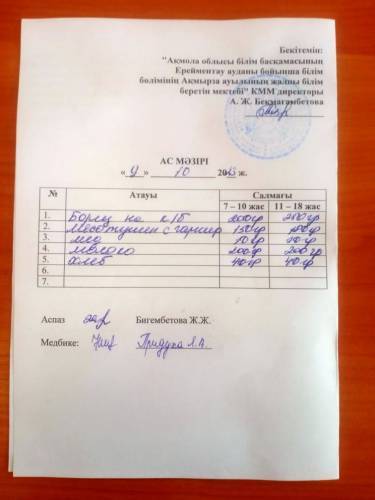 Бекітемін:
"Ақмола облысы білім басқармасының
Ерейментау ауданы бойынша білім
бөлімінің Ақмырза ауылының жалпы білім
беретін мектебі" КММ директоры
А. Ж. Бекмагамбетова
АС МӘЗІРІ
« 9 » 10 20 ж.
№ Атауы Салмағы
7 – 10 жас 11 – 18 жас
1. Борщ на к/б 200гр 250гр
2. Мясо тушен с гарнир 150гр 180гр
3. 10гр
4. молоко 200гр 200гр
5. хлеб 40гр 40гр
6.
7.
Аспаз Бигембетова Ж.Ж.
Медбике: Придуха Л.А.